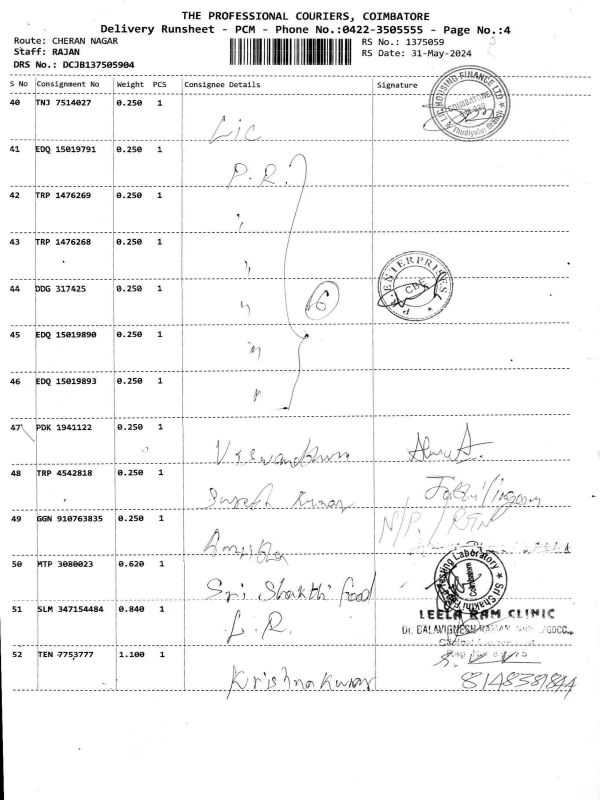 THE PROFESSIONAL COURIERS, COIMBATORE
Delivery Runsheet - PCM - Phone No.:0422-3505555 - Page No.:4
Route: CHERAN NAGAR
RS No.: 1375059
Staff: RAJAN
RS Date: 31-May-2024
DRS No.: DCJB137505904
S No Consignment No Weight PCS Consignee Details Signature
40 TNJ 7514027 0.250 1
Lic
LIC HOUSING FINANCE LTD
COIMBATORE
Thudiyalur Branch
41 EDQ 15019791 0.250 1
P.R.
42 TRP 1476269 0.250 1
"
43 TRP 1476268 0.250 1
"
44 DDG 317425 0.250 1
"
6
P.R. ENTERPRISES
CBE
45 EDQ 15019890 0.250 1
"
46 EDQ 15019893 0.250 1
"
47 PDK 1941122 0.250 1
48 TRP 4542818 0.250 1
Suresh Kumar
49 GGN 910763835 0.250 1
N/P. / RTN
50 MTP 3080023 0.620 1
Sri Shakthi Food
Sri Shakthi Food Testing Laboratory
Coimbatore
51 SLM 347154484 0.840 1
L.R.
LEELA RAM CLINIC
Dr. BALAVIGNESH
52 TEN 7753777 1.100 1
Krishnakumar
8148381844